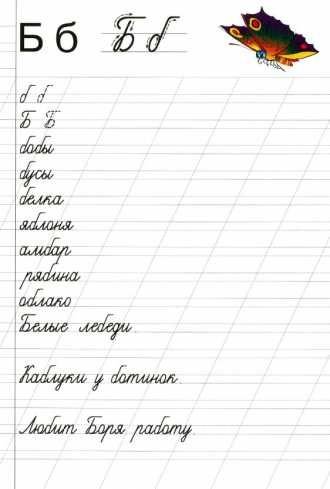 Б б Б б
б б
Б Б
бобы
бусы
белка
яблоня
амбар
рябина
облако
Белые лебеди.
Каблуки у ботинок.
Любит Боря работу.